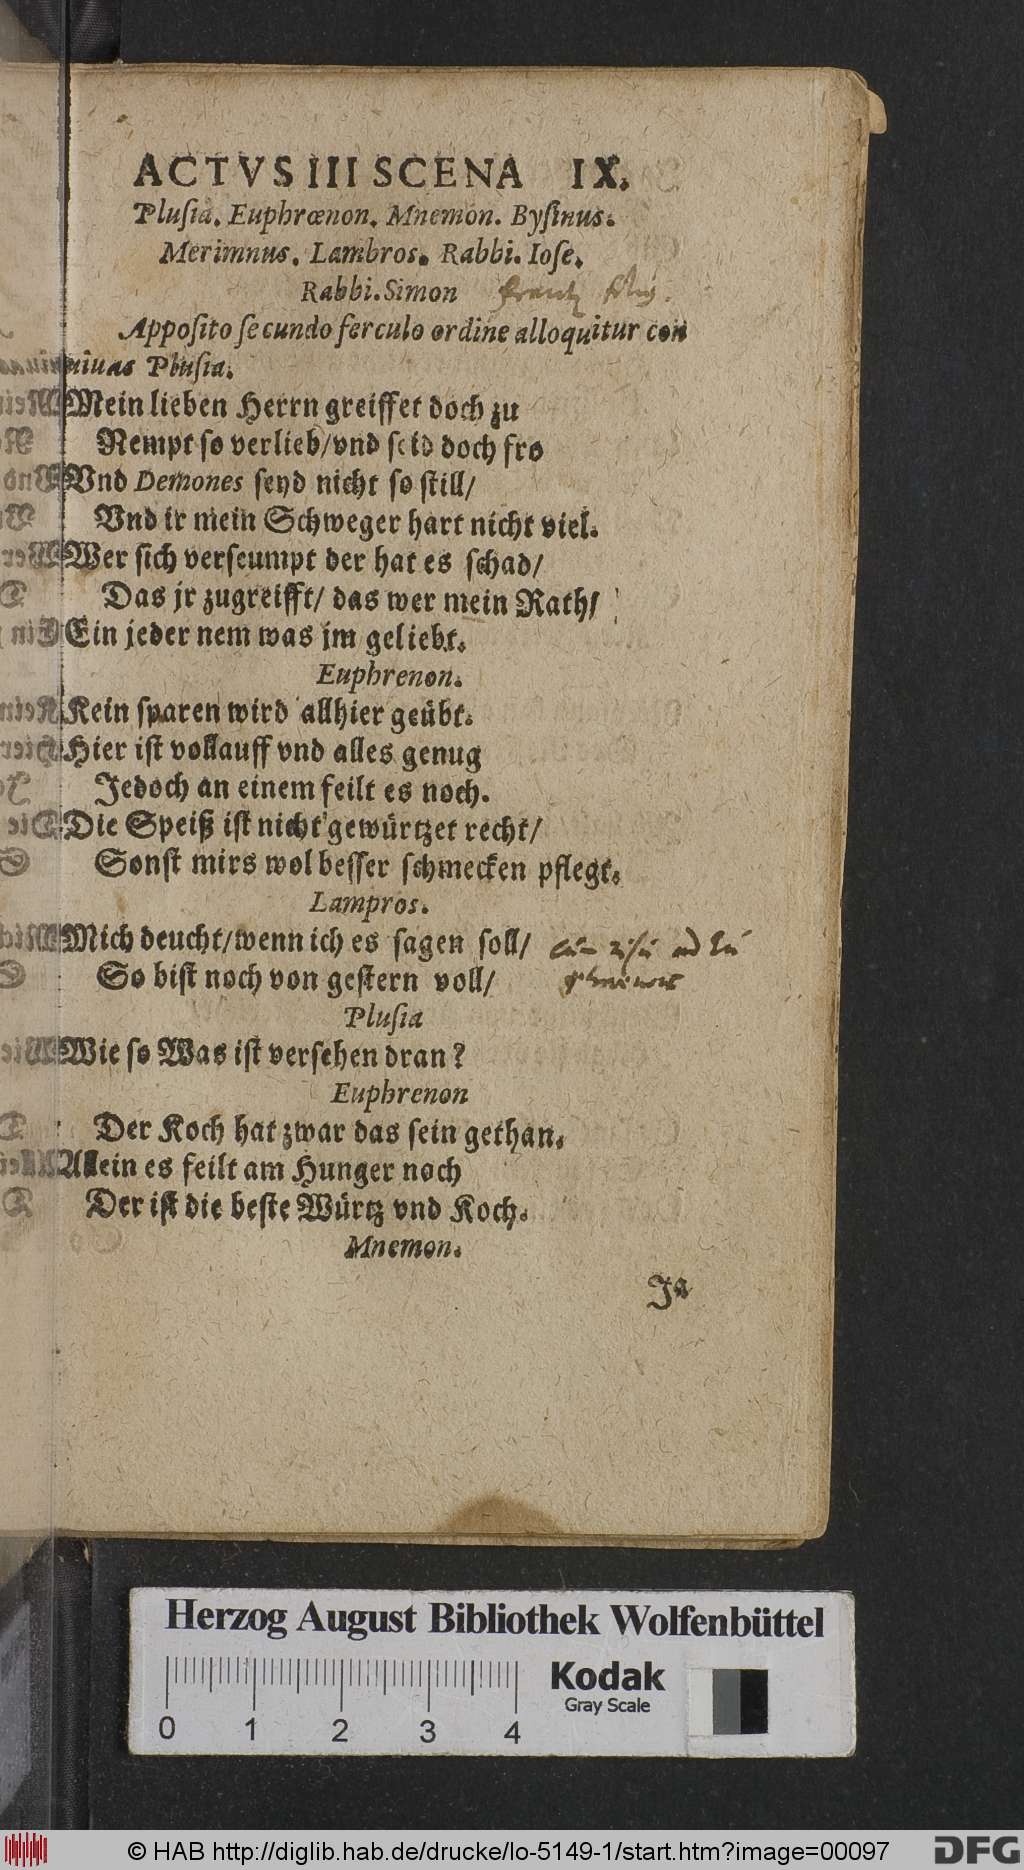 ACTVS III SCENA IX.
Pluſia. Euphrœnon. Mnemon. Byſinus.
Merimnus. Lambros. Rabbi. Ioſe.
Rabbi. Simon
Appoſito ſecundo ferculo ordine alloquitur con
uiuas Pluſia.
Mein lieben Herrn greiffet doch zu
Nempt ſo verlieb/ vnd ſeid doch fro
Vnd Demones ſeyd nicht ſo ſtill/
Vnd ir mein Schweger hart nicht viel.
Wer ſich verſeumpt der hat es ſchad/
Das jr zugreifft/ das wer mein Rath/
Ein jeder nem was jm geliebt.
Euphrenon.
Kein ſparen wird allhier geübt.
Hier iſt vollauff vnd alles genug
Jedoch an einem feilt es noch.
Die Speiß iſt nicht gewürtzet recht/
Sonſt mirs wol beſſer ſchmecken pflegt.
Lampros.
Mich deucht/ wenn ich es ſagen ſoll/
So biſt noch von geſtern voll/
Pluſia
Wie ſo Was iſt verſehen dran?
Euphrenon
Der Koch hat zwar das ſein gethan.
Allein es feilt am Hunger noch
Der iſt die beſte Würtz vnd Koch.
Mnemon.
Ja
Herzog August Bibliothek Wolfenbüttel
Kodak
Gray Scale
0 1 2 3 4
© HAB http://diglib.hab.de/drucke/lo-5149-1/start.htm?image=00097
DFG